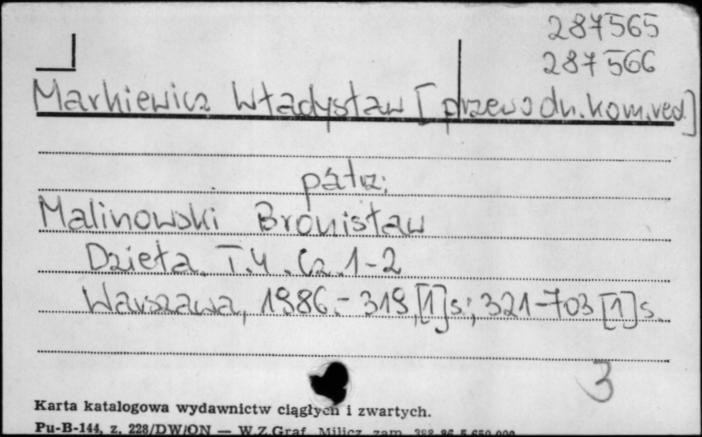 287565
287566
Markiewicz Władysław [przewodn. kom. red.]
patrz:
Malinowski Bronisław
Dzieła. T.4. Cz. 1-2
Warszawa, 1986.- 319,[1]s.; 321-703[1]s.
3
Karta katalogowa wydawnictw ciągłych i zwartych.
Pu-B-144, z. 228/DW/ON — W.Z.Graf. Milicz zam.